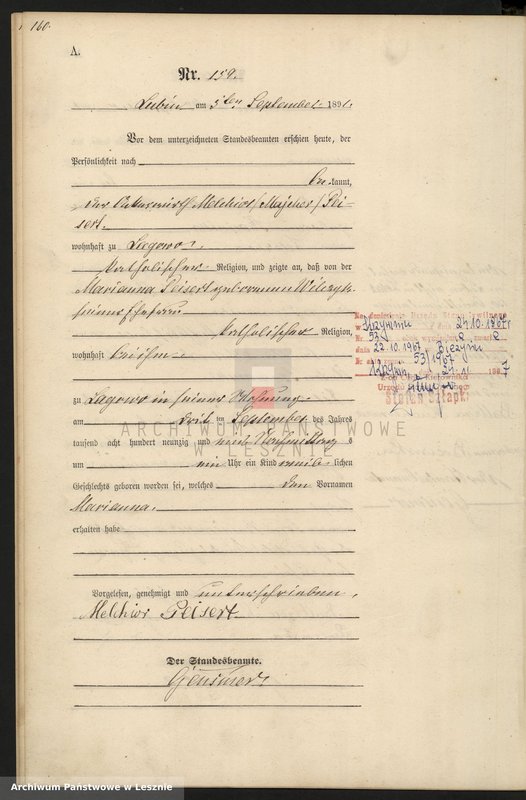 160.
A.
Nr. 159.
Lubin am 5ten September 1891.
Vor dem unterzeichneten Standesbeamten erschien heute, der
Persönlichkeit nach
be kannt,
der Melchior /Majcher/ Pei-
sert
wohnhaft zu Zegowo
katholischer Religion, und zeigte an, daß von der
Marianna Peisert geborenen Wilczyk
seiner Ehefrau
katholischer Religion,
wohnhaft bei ihm
zu Zegowo in seiner Wohnung
am dritten September des Jahres
tausend acht hundert neunzig und eins Nachmittags
um ein Uhr ein Kind weib lichen
Geschlechts geboren worden sei, welches den Vornamen
Marianna
erhalten habe
Vorgelesen, genehmigt und unterschrieben.
Melchior Peisert
Der Standesbeamte.
24.10.1967
Nr. 53
dnia 22.10.1967
53/1967
1967
Urzędu
ARCHIWUM PAŃSTWOWE
W LESZNIE
Archiwum Państwowe w Lesznie